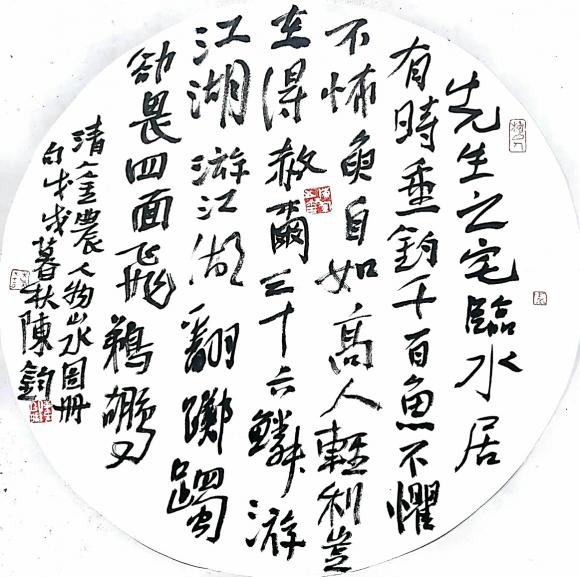 先生之宅臨水居
有時垂釣千百魚不懼
不怖魚自如高人輕利豈
在得赦爾三十六鱗游
江湖游江湖翻躑躅
畏四面飛鵜鶘
清金農人物山水圖冊
句戊戌暮秋陳鈞